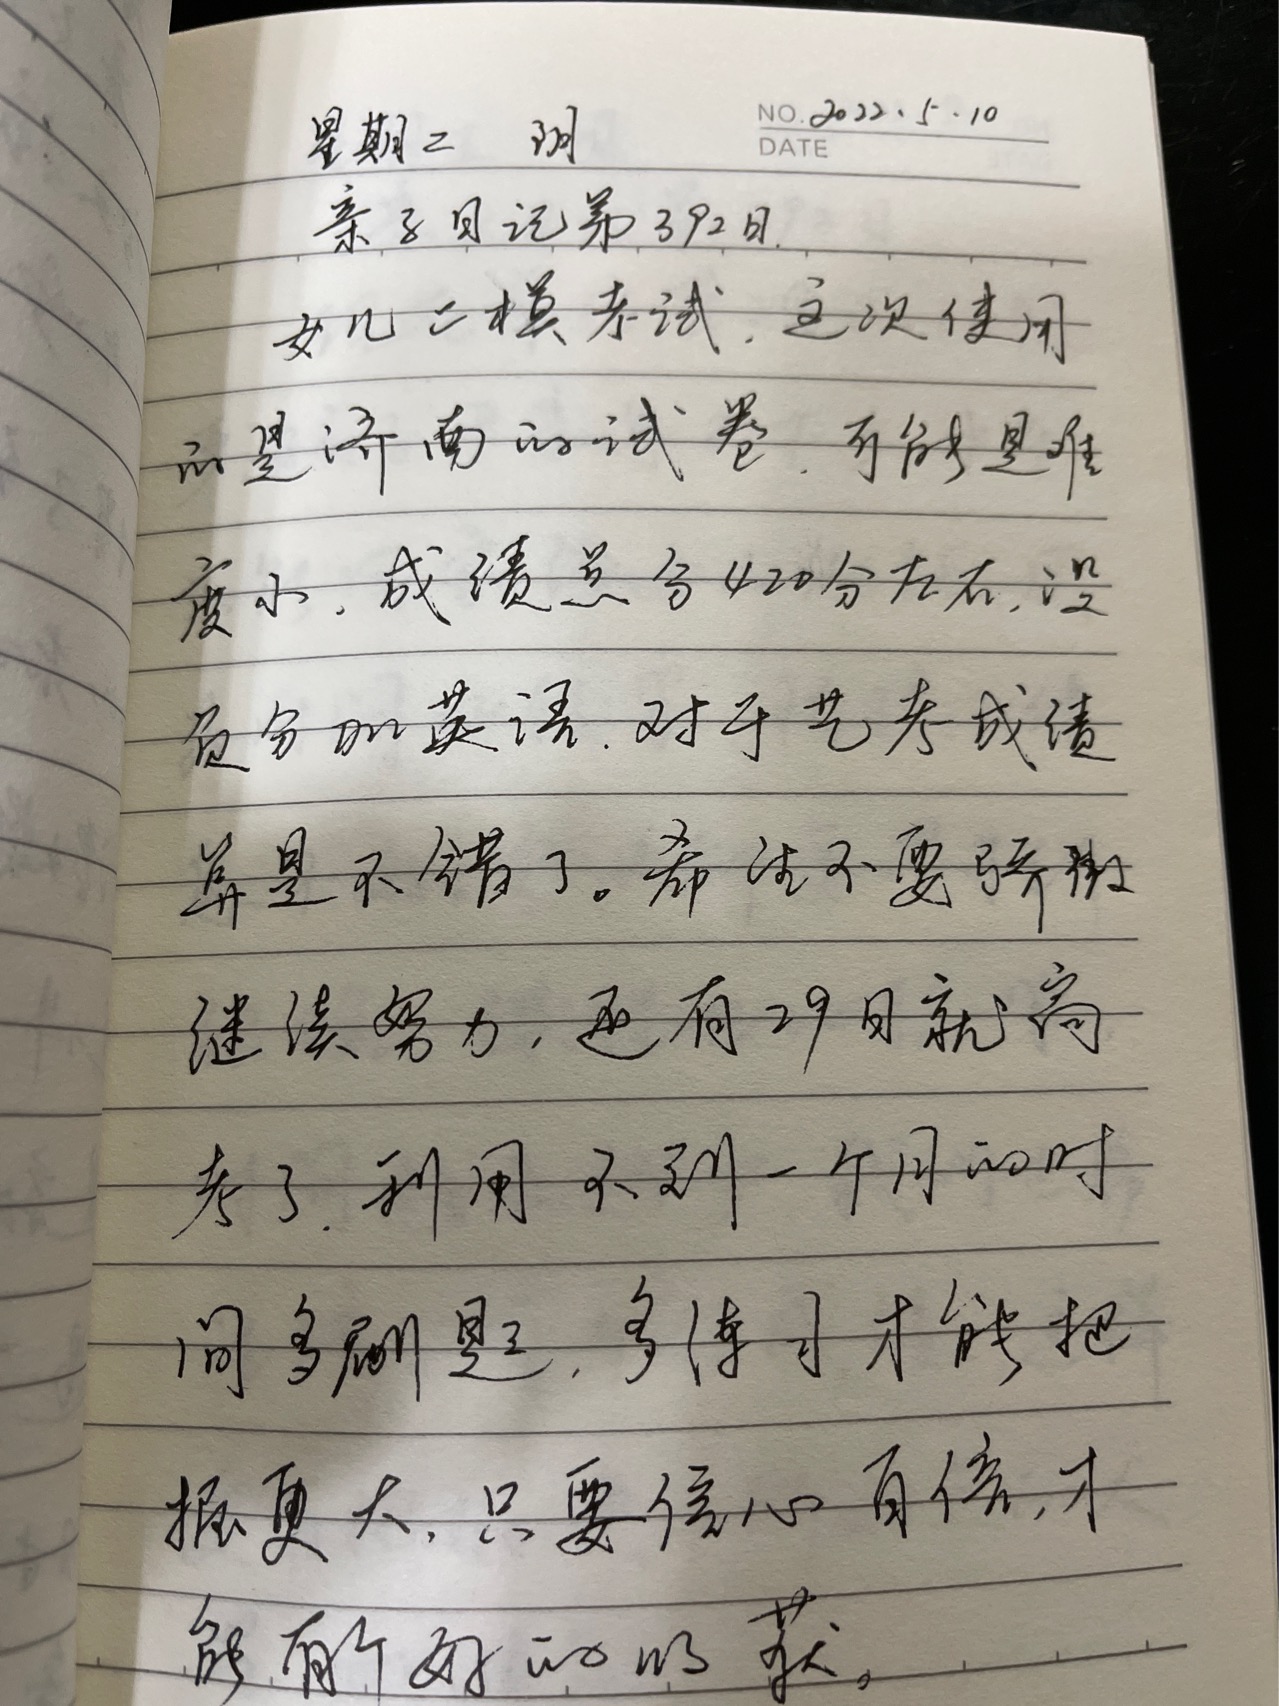 NO. 2022.5.10
DATE
星期二 阴
亲子日记第392日.
女儿二模考试,这次使用
的是济南的试卷,可能是难
度小,成绩总分420分左右,没
有分加英语,对于艺考成绩
算是不错了。希望不要骄傲
继续努力,还有29日就高
考了,利用不到一个月的时
间多刷题,多练习才能把
握更大,只要信心百倍,才
能有个好的收获。